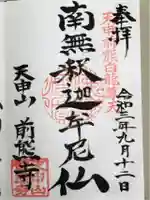 奉拝
令和三年九月十二日
南無釈迦牟尼仏
天申山
前熊寺